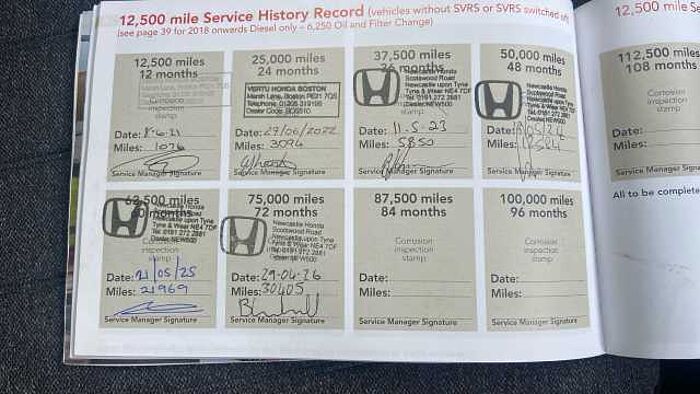 12,500 mile Service History Record (vehicles without SVRS or SVRS switched off)
(see page 39 for 2018 onwards Diesel only – 6,250 Oil and Filter Change)
12,500 miles
12 months
Corrosion
inspection
stamp
Date: 8-6-21
Miles: 1026
Service Manager Signature
25,000 miles
24 months
VERTU HONDA BOSTON
Marsh Lane, Boston PE21 7QS
Telephone: 01205 319195
Date: 29/06/2022
Miles: 3094
Service Manager Signature
37,500 miles
36 months
Newcastle Honda
Scotswood Road
Newcastle upon Tyne
Tyne & Wear NE4 7DF
Tel: 0191 272 2881
Dealer: NEW600
Date: 11.5.23
Miles: 5850
Service Manager Signature
50,000 miles
48 months
Newcastle Honda
Scotswood Road
Newcastle upon Tyne
Tyne & Wear NE4 7DF
Tel: 0191 272 2881
Dealer NEW600
Date:
Miles:
Service Manager Signature
62,500 miles
60 months
Newcastle Honda
Scotswood Road
Newcastle upon Tyne
Tyne & Wear NE4 7DF
Tel: 0191 272 2881
Dealer: NEW600
inspection
stamp
Date: 21/05/25
Miles: 21969
Service Manager Signature
75,000 miles
72 months
Newcastle Honda
Scotswood Road
Newcastle upon Tyne
Tyne & Wear NE4 7DF
Date: 29-04-26
Miles: 30405
Service Manager Signature
87,500 miles
84 months
Corrosion
inspection
stamp
Date:
Miles:
Service Manager Signature
100,000 miles
96 months
Corrosion
inspection
stamp
Date:
Miles:
Service Manager Signature
12,500 mile Se
112,500 miles
108 months
Corrosion
inspection
stamp
Date:
Miles:
Service Manager Signa
All to be complete